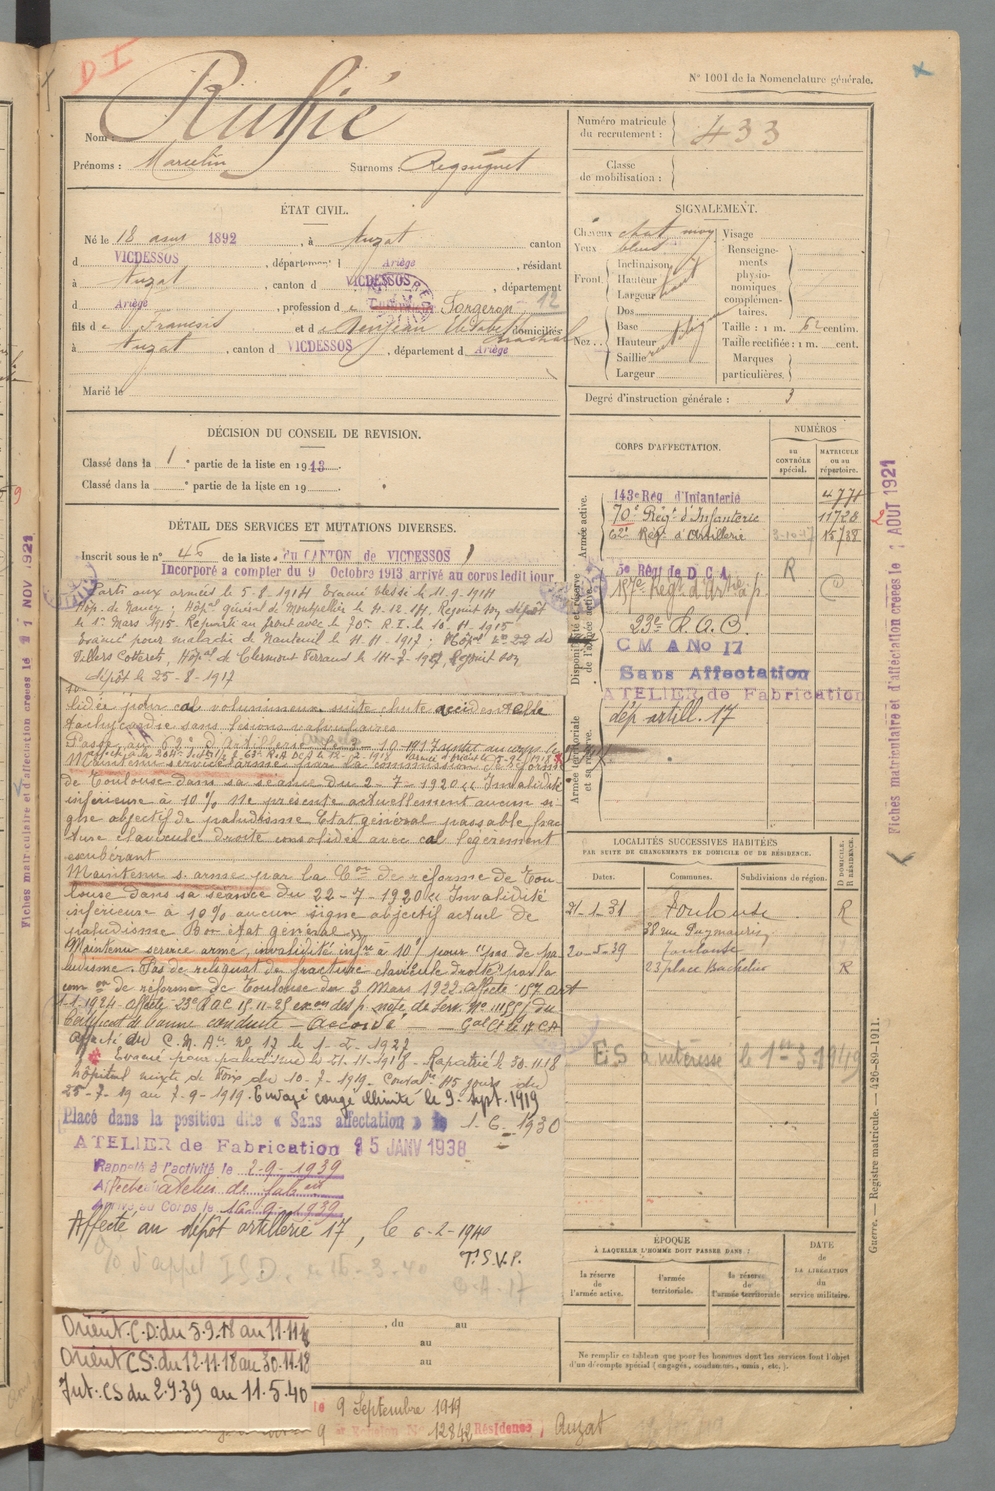 D I
N° 1001 de la Nomenclature générale.
Nom : Ruffié
Prénoms : Marcelin Surnoms :
Numéro matricule du recrutement : 433
Classe de mobilisation :
ÉTAT CIVIL.
Né le 18 1892, à Auzat canton
d VICDESSOS, département d Ariège, résidant
à Auzat, canton d VICDESSOS, département
d Ariège, profession d Forgeron 12
fils de François et de domiciliés
à Auzat, canton d VICDESSOS, département d Ariège
Marié le
SIGNALEMENT.
Cheveux chat moy
Yeux bleus
Front
Inclinaison
Hauteur haut
Largeur
Nez
Dos
Base
Hauteur
Saillie
Largeur
Visage
Renseignements physionomiques complémentaires.
Taille : 1 m. 62 centim.
Taille rectifiée : 1 m. cent.
Marques particulières.
Degré d'instruction générale : 3
DÉCISION DU CONSEIL DE REVISION.
Classé dans la 1e partie de la liste en 1913.
Classé dans la e partie de la liste en 19
CORPS D'AFFECTATION.
NUMÉROS
au CONTRÔLE spécial.
MATRICULE ou au répertoire.
Armée active.
143e Rég d'Infanterie 4771
70e Régt d'Infanterie 11728
62e Régt d'Artillerie 3-10-17 15738
Disponibilité et réserve de l'armée active.
5e Rég de D C A R
157e Régt d'Artie à p.
23e R.A.C.
C M A No 17
Sans Affectation
ATELIER de Fabrication
dép artill. 17
Armée territoriale et sa réserve.
DÉTAIL DES SERVICES ET MUTATIONS DIVERSES.
Inscrit sous le n° 46 de la liste du CANTON de VICDESSOS
Incorporé à compter du 9 Octobre 1913 arrivé au corps ledit jour
Parti aux armées le 5-8-1914 Evacué blessé le 11-9-1914
Hôp. de Nancy ; Hôpal Général de Montpellier le 11-12-14, Rejoint son dépôt
le 1er Mars 1915. Reparti au front avec le 70e R.I. le 16-11-1915
Evacué pour maladie de Nanteuil le 11-11-1917 ; Hôpal N° 22 de
Villers Cotterets, Hôpal de Clermont Ferrand le 14-7-1917, Rejoint son
dépôt le 25-8-1917
lidée pour cal volumineux suite chute accidentelle
tachycardie sans lésions valvulaires
Passé au 62e d'Artillerie le 3-10-1917
Maintenu service armé par la Commission de réforme
de Toulouse dans sa séance du 2-7-1920 "Invalidité
inférieure à 10% Ne présente actuellement aucun si-
gne objectif de paludisme Etat général passable frac
ture clavicule droite consolidée avec cal légèrement
exubérant
Maintenu s. armé par la Con de réforme de Tou-
louse dans sa séance du 22-7-1920 "Invalidité
inférieure à 10% aucun signe objectif actuel de
paludisme Bon état général"
Maintenu service armé, invalidité infre à 10% pour "pas de pa
ludisme. Pas de reliquat de fracture clavicule droite" par la
com on de réforme de Toulouse du 3 Mars 1922. Affecté 157 art
1-1-1924. Affecté 23e RAC 15-11-25 note de Serv. N° 11155/ du
Certificat de bonne conduite – Accordé – Gal Ct le 17 CA
Affecté du C.M.A. n° 17 le 1-2-1927
Evacué pour paludisme le 21-11-1918 – Rapatrié le 30-11-18
hôpital mixte de Foix du 10-7-1919. Conval. 45 jours du
25-7-19 au 7-9-1919. Envoyé congé illimité le 9. sept. 1919
Placé dans la position dite « Sans affectation » le 1-6-1930
ATELIER de Fabrication 15 JANV 1938
Rappelé à l'activité le 2-9-1939
Affecté atelier de
Arrivé au Corps le
Affecté au dépôt artillerie 17, le 6-2-1940
T.S.V.P.
D.A. 17
LOCALITÉS SUCCESSIVES HABITÉES
PAR SUITE DE CHANGEMENTS DE DOMICILE OU DE RÉSIDENCE.
Dates. Communes. Subdivisions de région. D DOMICILE. R RÉSIDENCE.
21-1-31 Toulouse R
38 rue Puymaurin
20-5-39 Toulouse
23 place Bachelier R
ÉPOQUE
À LAQUELLE L'HOMME DOIT PASSER DANS :
la réserve de l'armée active.
l'armée territoriale.
la réserve de l'armée territoriale
DATE de LA LIBÉRATION du service militaire.
Ne remplir ce tableau que pour les hommes dont les services font l'objet
d'un décompte spécial (engagés, condamnés, omis, etc.).
, du au
au
au
Orient. C.D: du 5.9.18 au 11.11.18
Orient CS: du 12.11.18 au 30.11.18
Int.: CS du 2.9.39 au 11.5.40
le 9 Septembre 1919
12842 Résidence, Auzat
Fiches matriculaire et d'affectation créées le 1 NOV 1921
Fiches matriculaire et d'affectation créées le 1 AOUT 1921
Guerre. — Registre matricule. — 426-89-1911.